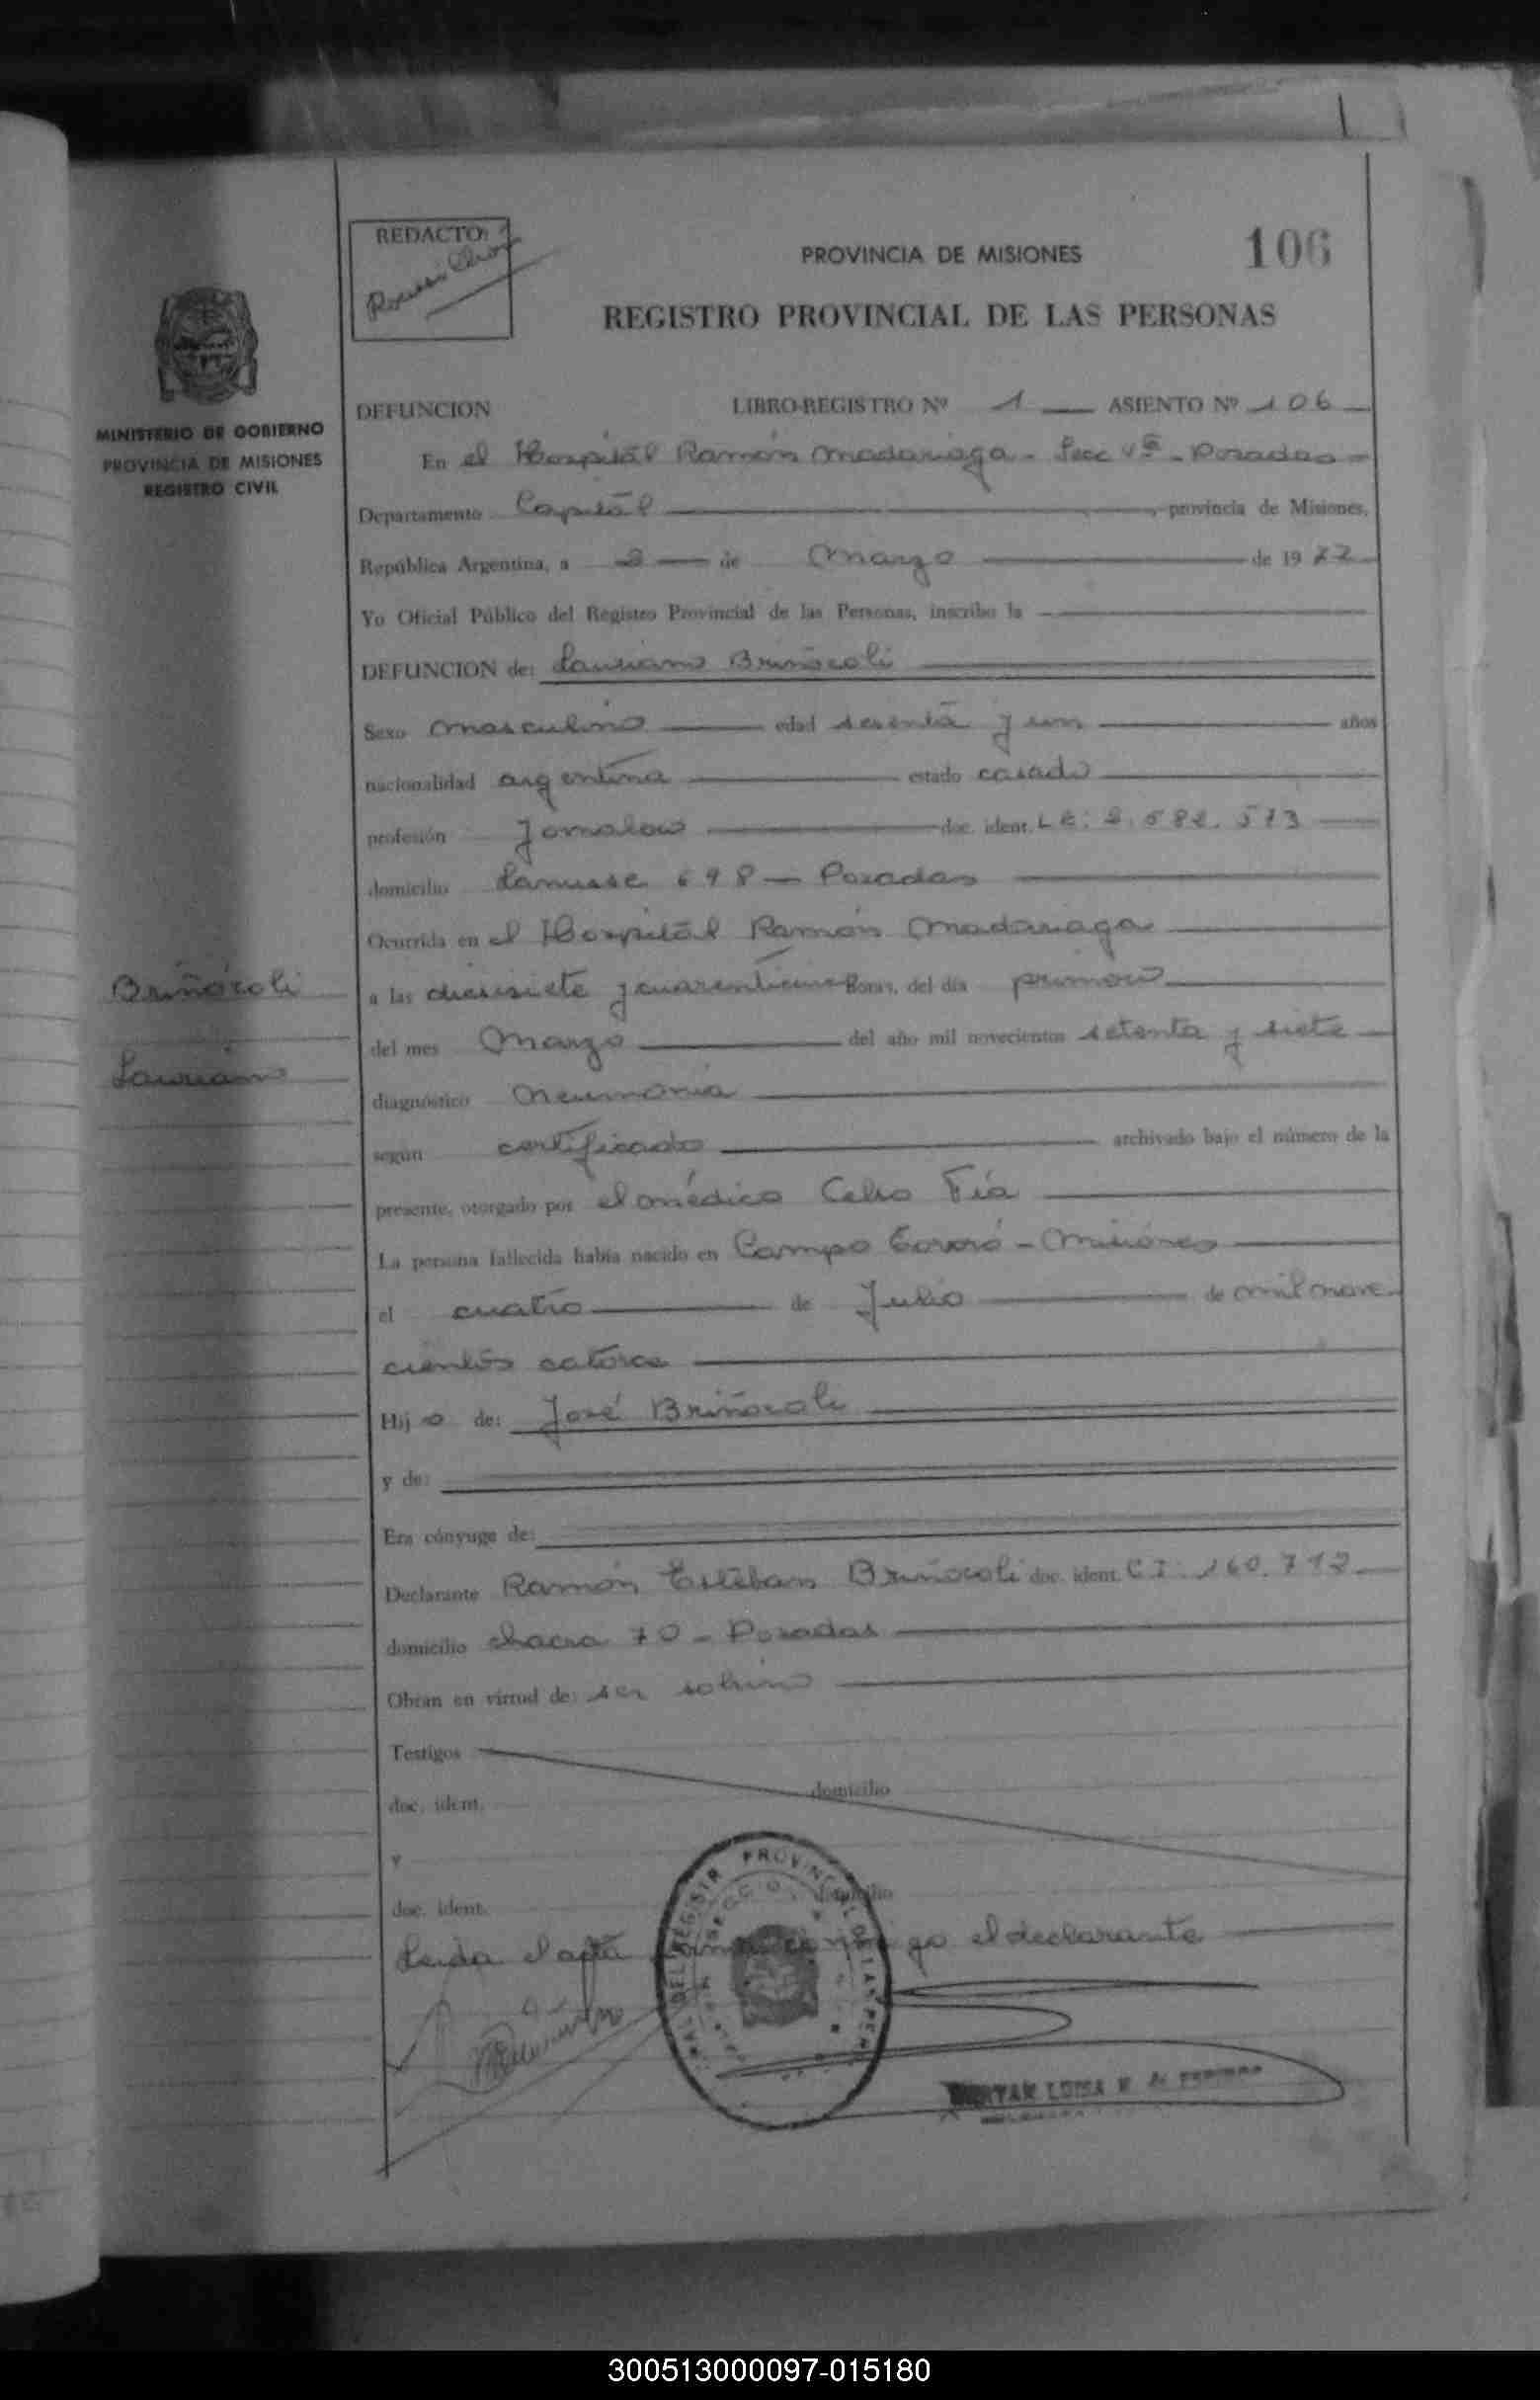 REDACTO:
PROVINCIA DE MISIONES
106
REGISTRO PROVINCIAL DE LAS PERSONAS
MINISTERIO DE GOBIERNO
PROVINCIA DE MISIONES
REGISTRO CIVIL
DEFUNCION LIBRO-REGISTRO Nº 1 ASIENTO Nº 106
En el Hospital Ramón Madariaga - Secc Vª - Posadas -
Departamento Capital , provincia de Misiones,
República Argentina, a 2 de Marzo de 1977
Yo Oficial Público del Registro Provincial de las Personas, inscribo la
DEFUNCION de: Lauriano Briñócoli
Sexo masculino edad sesenta y un años
nacionalidad argentina estado casado
profesión Jornalero doc. ident. LE: 2.582.573
domicilio Lanusse 698 - Posadas
Ocurrida en el Hospital Ramón Madariaga
Briñócoli
a las diecisiete y cuarenticinco horas, del día primero
del mes Marzo del año mil novecientos setenta y siete
Lauriano
diagnóstico Neumonia
según certificado archivado bajo el número de la
presente, otorgado por el médico Celso Fía
La persona fallecida había nacido en Campo Tororó - Misiones
el cuatro de Julio de mil nove
cientos catorce
Hijo de: José Briñócoli
y de:
Era cónyuge de:
Declarante Ramón Esteban Briñócoli doc. ident. C.I: 160.712
domicilio chacra 70 - Posadas
Obran en virtud de: ser sobrino
Testigos
doc. ident. domicilio
y
doc. ident. domicilio
Leida el acta firma conmigo el declarante
300513000097-015180